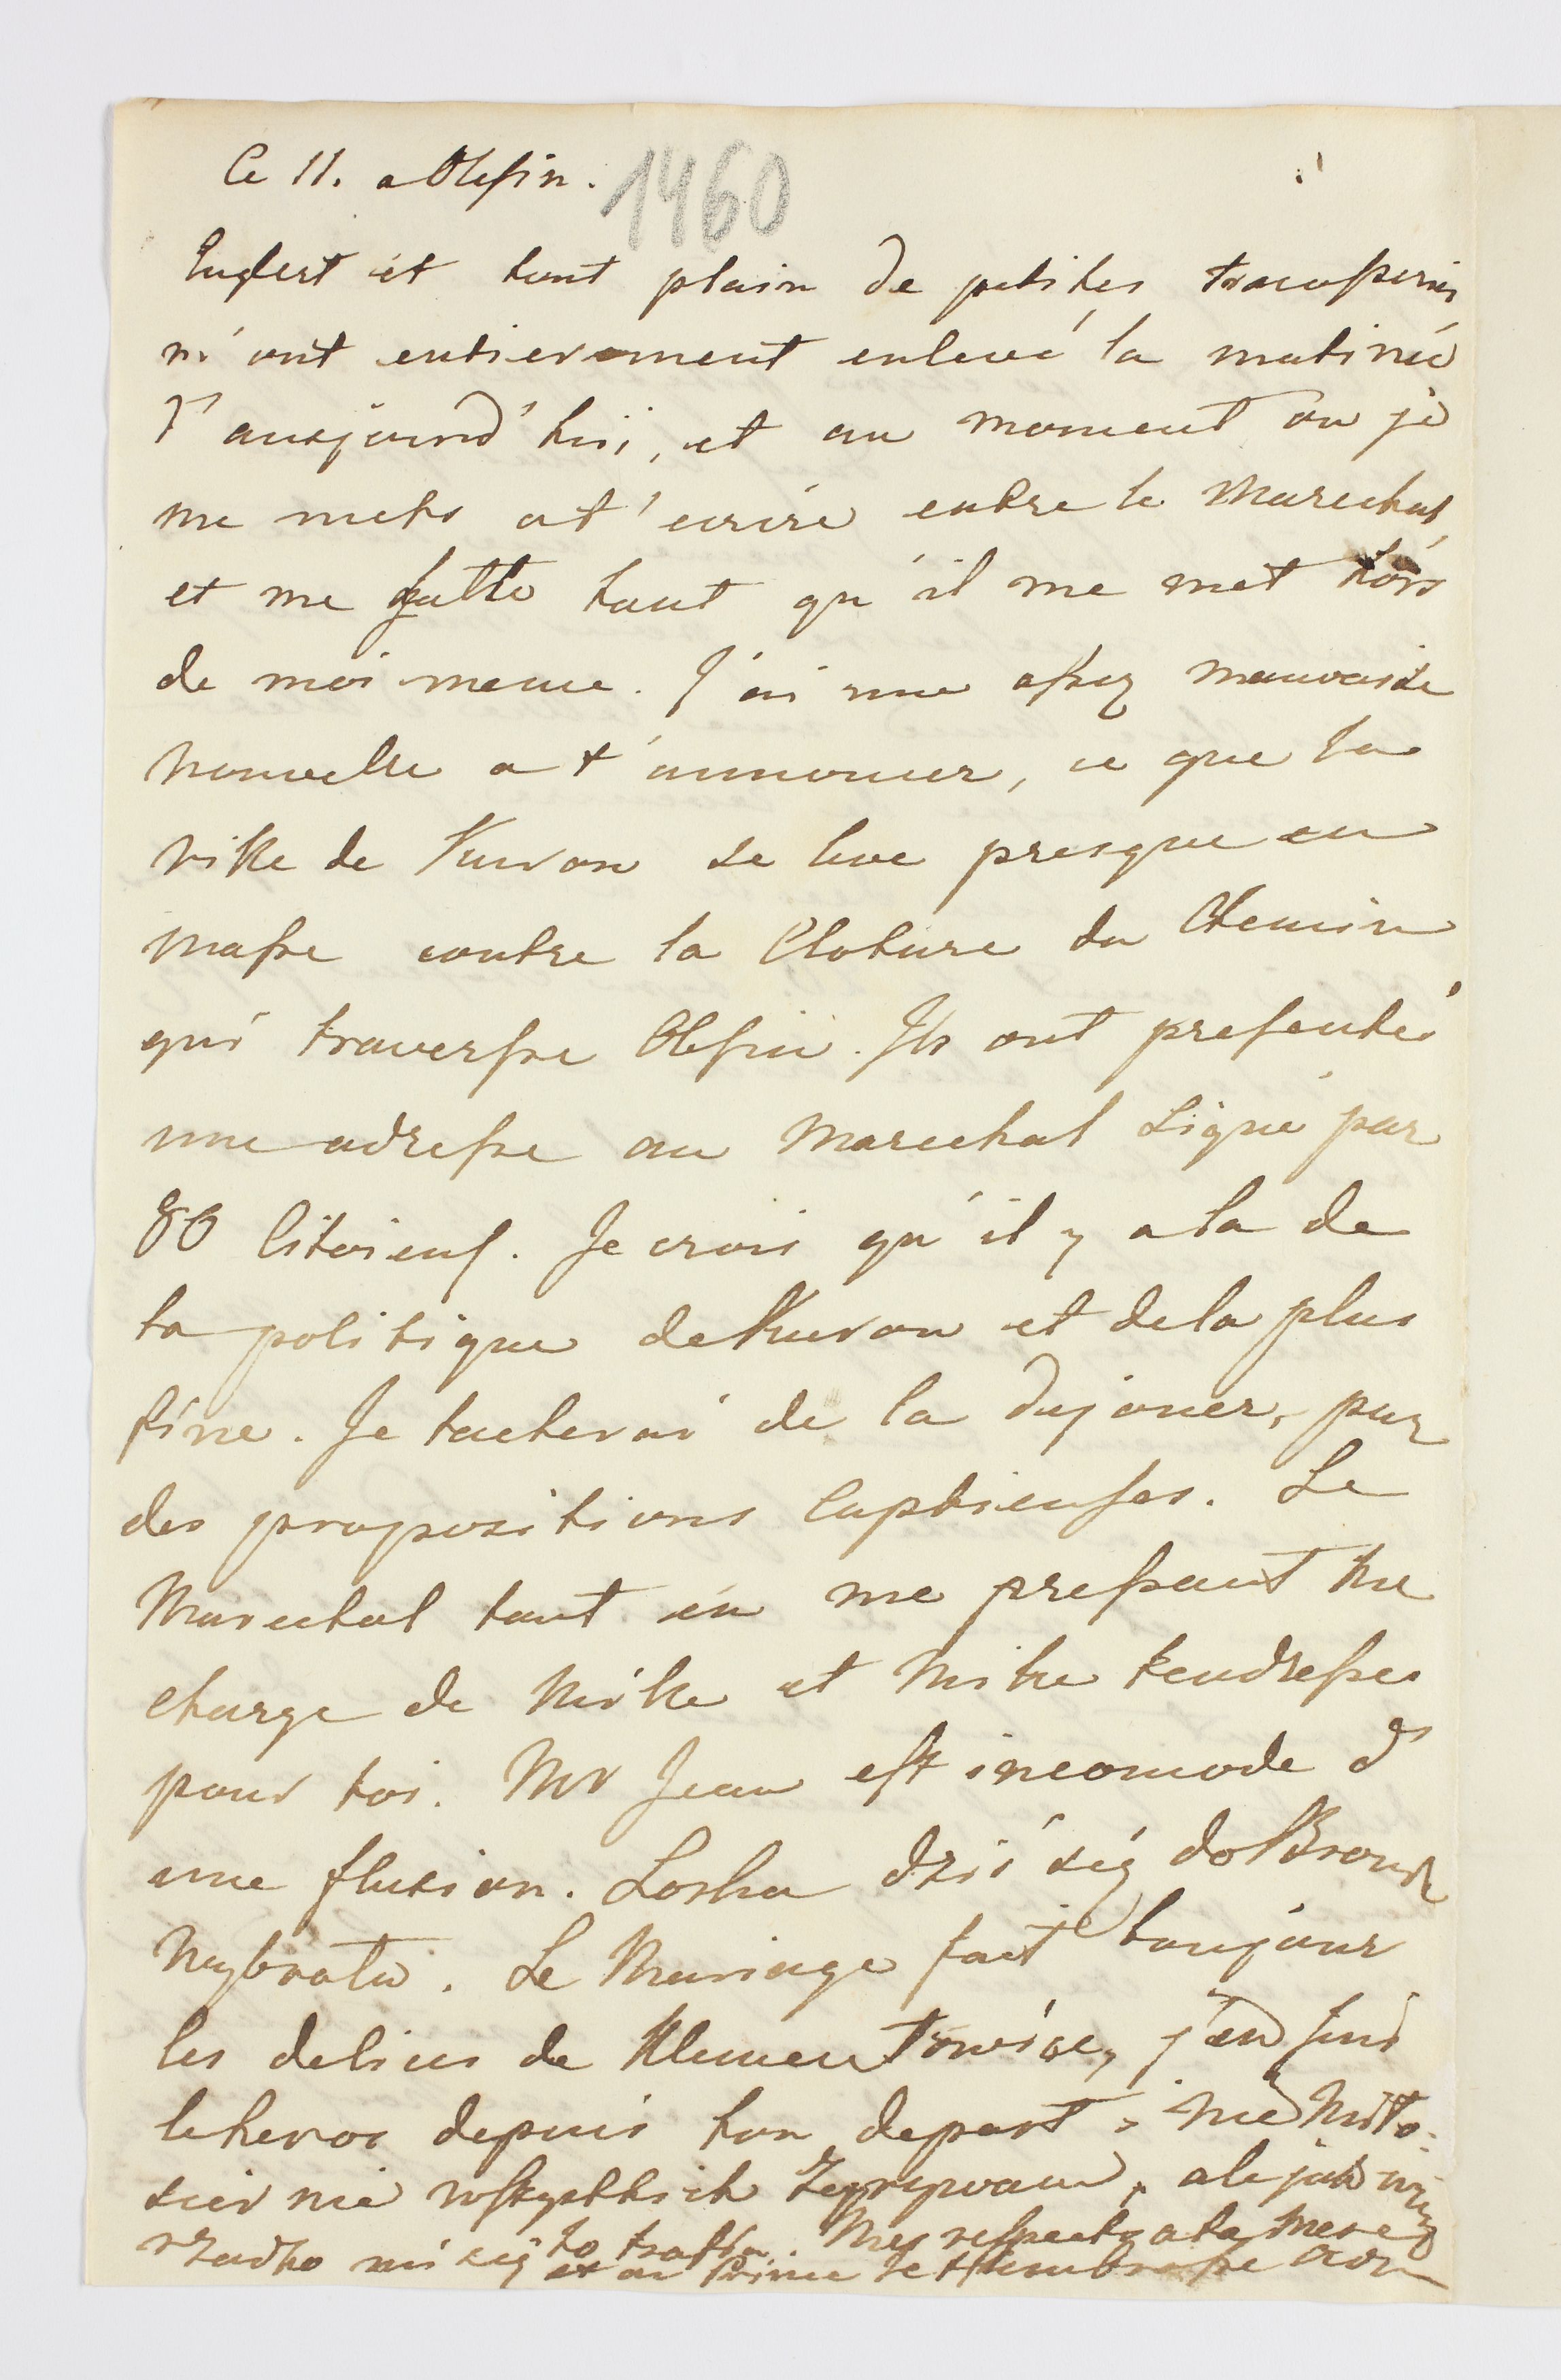 Ce 11. a Olesin. 1460
Englert et tout plain de petites tracasseries
m'ont entierement enlevé la matinée
d'aujourd'hüi, et au moment ou je
me mets a t'ecrire entre le Marechal,
et me hatte tant qu'il me met hors
de moi meme. J'ai une assez mauvaise
nouvelle a t'annoncer, ce que la
ville de Kurow se leve presque en
masse contre la Cloture du Chemin
qui traversse Olesin. Ils ont presentés
une adresse au Marechal Signé par
80 Citoiens. Je crois qu'il y a la de
la politique de Kurow et de la plus
fine. Je tacherai de la dejouer, par
des propositions Captieuses. Le
Marechal tout en me pressant me
charge de Mille et Mille tendresses
pour toi. Mr Jean est incomode d'
une fluxion. Loska dziś się do Bronic
wybrała. Le Mariage fait toujour
les delices de Klementowice, j'en suis
le heros depuis ton depart, nie Mito-
sier nie wszystkich zegrywam, ale jak
rzadko mi się to trafia. Mes respects a ta Mere
et au Prince je t'embrasse